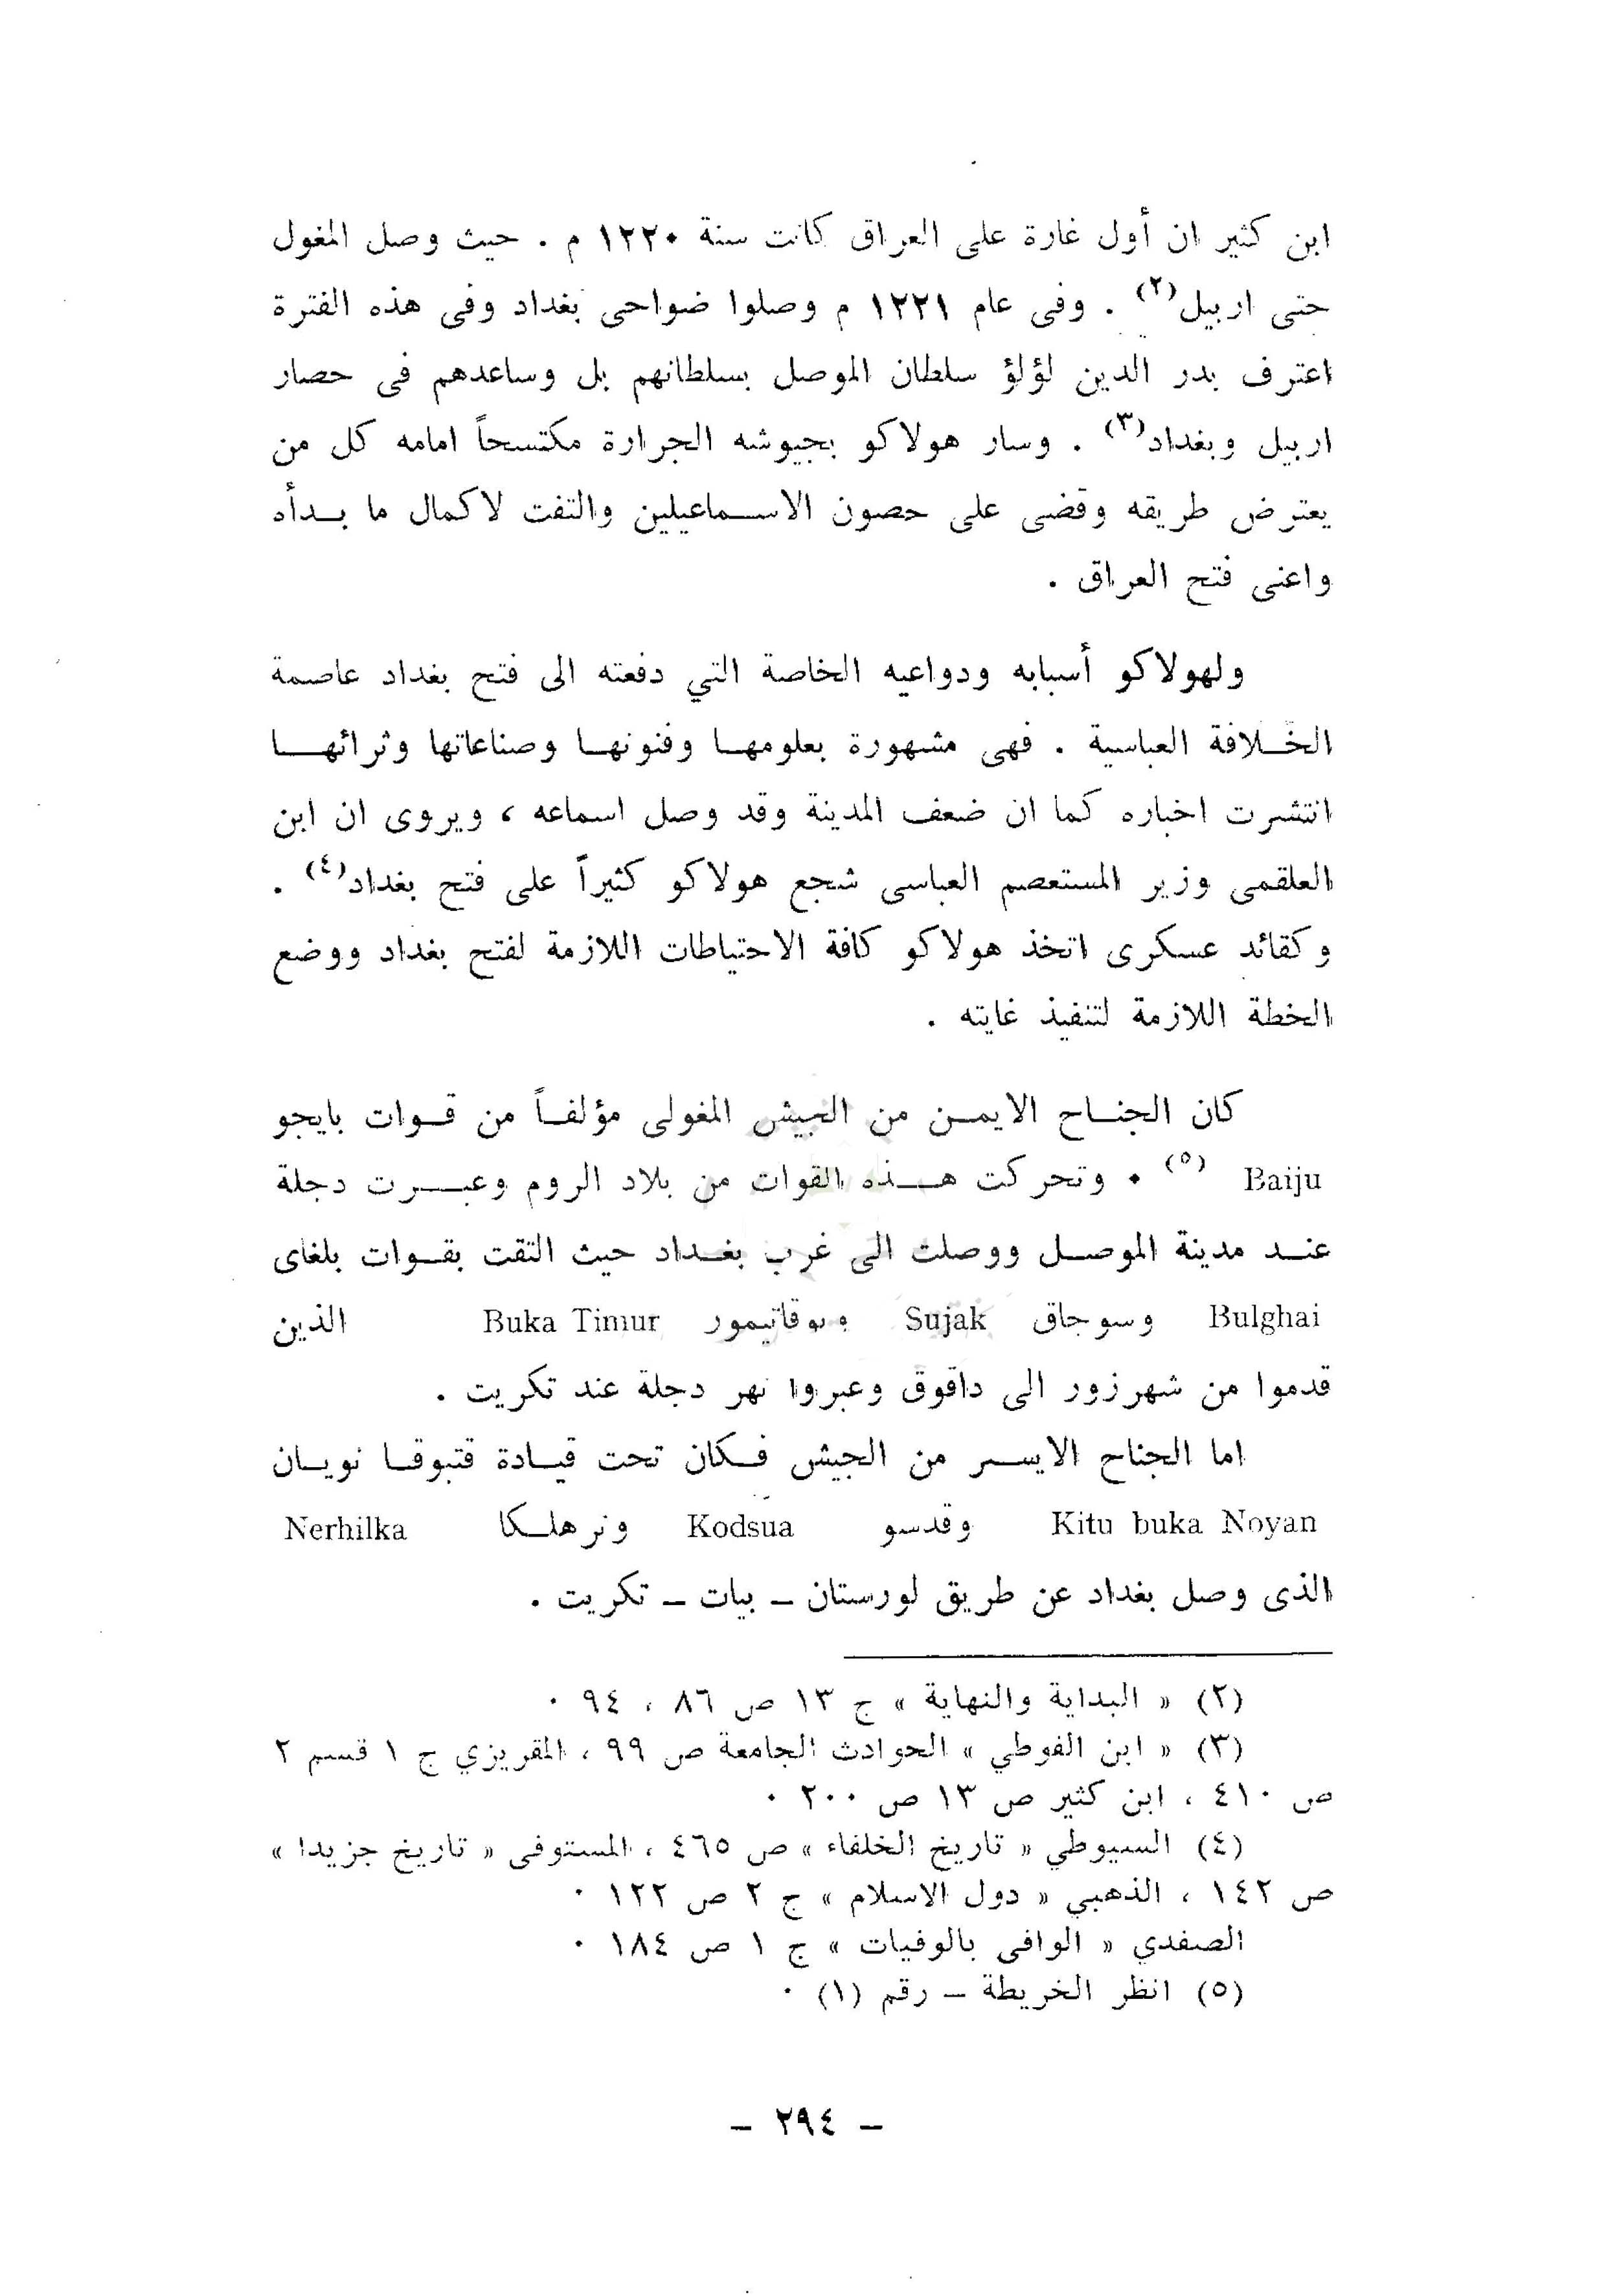 ابن كثير ان أول غارة على العراق كانت سنة ١٢٢٠ م . حيث وصل المغول
حتى اربيل(٢) . وفى عام ١٢٢١ م وصلوا ضواحى بغداد وفى هذه الفترة
اعترف بدر الدين لؤلؤ سلطان الموصل بسلطانهم بل وساعدهم فى حصار
اربيل وبغداد(٣) . وسار هولاكو بجيوشه الجرارة مكتسحاً امامه كل من
يعترض طريقه وقضى على حصون الاسماعيلين والتفت لاكمال ما بدأه
واعنى فتح العراق .
ولهولاكو أسبابه ودواعيه الخاصة التي دفعته الى فتح بغداد عاصمة
الخلافة العباسية . فهى مشهورة بعلومها وفنونها وصناعاتها وثرائها
انتشرت اخباره كما ان ضعف المدينة وقد وصل اسماعه ، ويروى ان ابن
العلقمى وزير المستعصم العباسى شجع هولاكو كثيراً على فتح بغداد(٤) .
وكقائد عسكرى اتخذ هولاكو كافة الاحتياطات اللازمة لفتح بغداد ووضع
الخطة اللازمة لتنفيذ غايته .
كان الجناح الايمن من الجيش المغولى مؤلفاً من قوات بايجو
Baiju (٥) . وتحركت هذه القوات من بلاد الروم وعبرت دجلة
عند مدينة الموصل ووصلت الى غرب بغداد حيث التقت بقوات بلغاى
Bulghai وسوجاق Sujak وبوقاتيمور Buka Timur الذين
قدموا من شهرزور الى داقوق وعبروا نهر دجلة عند تكريت .
اما الجناح الايسر من الجيش فكان تحت قيادة قتبوقا نويان
Kitu buka Noyan وقدسو Kodsua ونرهلكا Nerhilka
الذى وصل بغداد عن طريق لورستان - بيات - تكريت .
(٢) « البداية والنهاية » ج ١٣ ص ٨٦ ، ٩٤ .
(٣) « ابن الفوطي » الحوادث الجامعة ص ٩٩ ، المقريزي ج ١ قسم ٢
ص ٤١٠ ، ابن كثير ص ١٣ ص ٢٠٠ .
(٤) السيوطي « تاريخ الخلفاء » ص ٤٦٥ ، المستوفى « تاريخ جزيدا »
ص ١٤٢ ، الذهبي « دول الاسلام » ج ٢ ص ١٢٢ .
الصفدي « الوافى بالوفيات » ج ١ ص ١٨٤ .
(٥) انظر الخريطة - رقم (١) .
- ٢٩٤ -